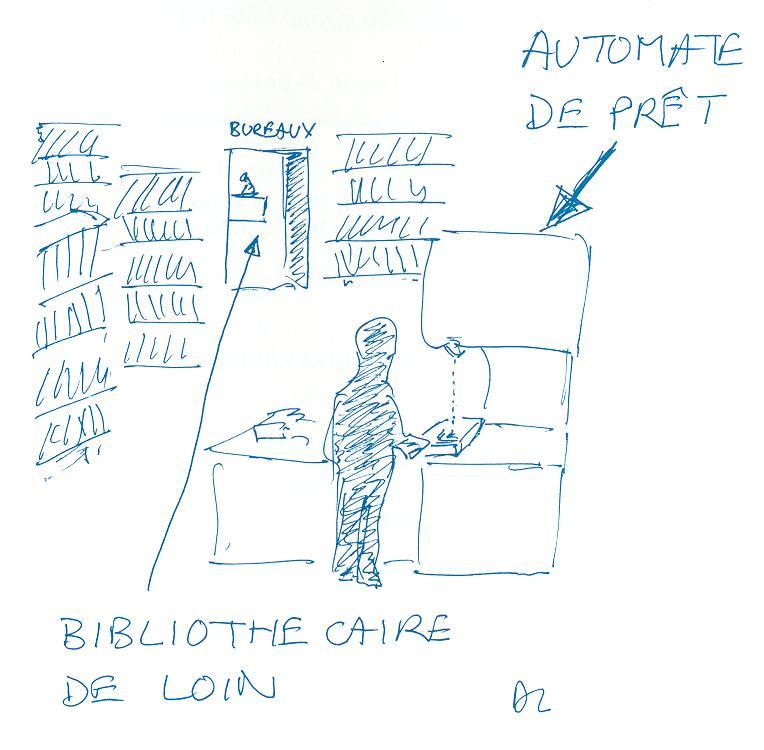 AUTOMATE
DE PRÊT
BUREAUX
BIBLIOTHECAIRE
DE LOIN